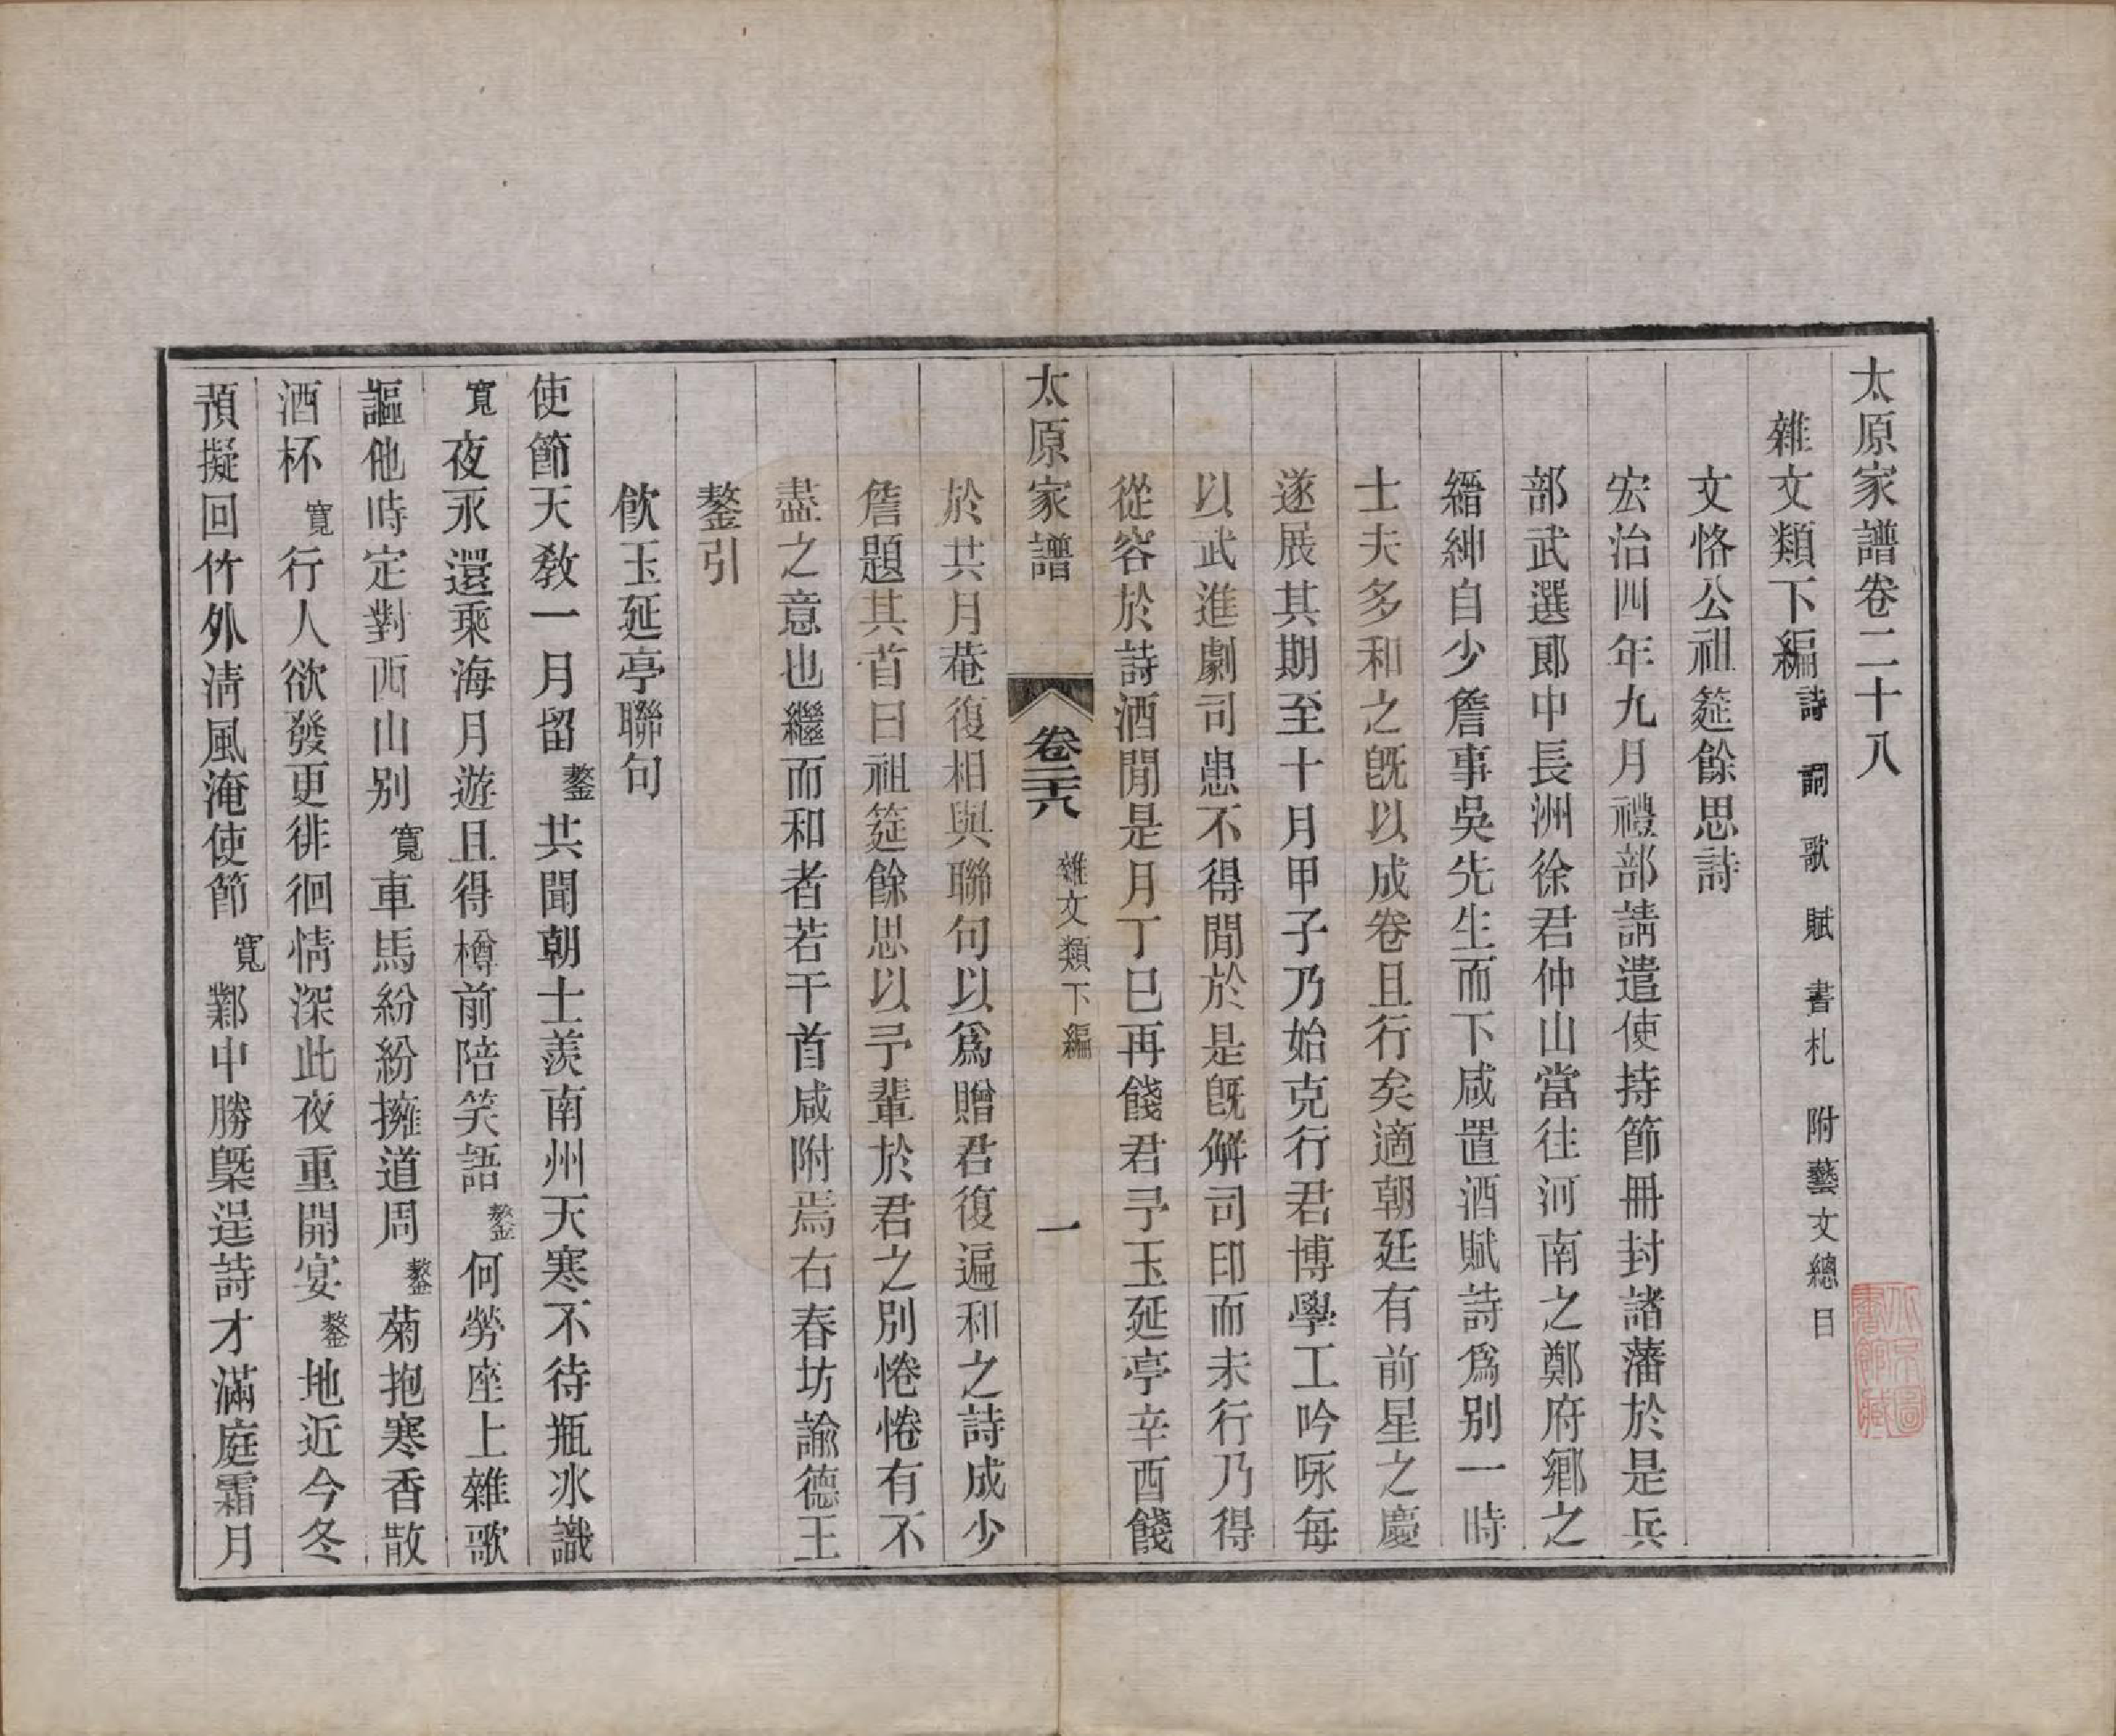 太原家譜卷二十八
雜文類下編 詩 詞 歌 賦 書札 附藝文總目
文恪公祖筵餘思詩
宏治四年九月禮部請遣使持節冊封諸藩於是兵
部武選郎中長洲徐君仲山當往河南之鄭府鄉之
縉紳自少詹事吳先生而下咸置酒賦詩爲別一時
士夫多和之旣以成卷且行矣適朝廷有前星之慶
遂展其期至十月甲子乃始克行君博學工吟咏每
以武進劇司患不得閒於是旣解司印而未行乃得
從容於詩酒閒是月丁巳再餞君予玉延亭辛酉餞
太原家譜 卷二十八 雜文類下編 一
於共月菴復相與聯句以爲贈君復遍和之詩成少
詹題其首曰祖筵餘思以予輩於君之別惓惓有不
盡之意也繼而和者若干首咸附焉右春坊諭德王
鏊引
飲玉延亭聯句
使節天教一月留鏊共聞朝士羨南州天寒不待瓶冰識
寬夜永還乘海月遊且得樽前陪笑語鏊何勞座上雜歌
謳他時定對西山別寬車馬紛紛擁道周鏊菊抱寒香散
酒杯寬行人欲發更徘徊情深此夜重開宴鏊地近今冬
預擬回竹外清風淹使節寬鄴中勝槩逞詩才滿庭霜月